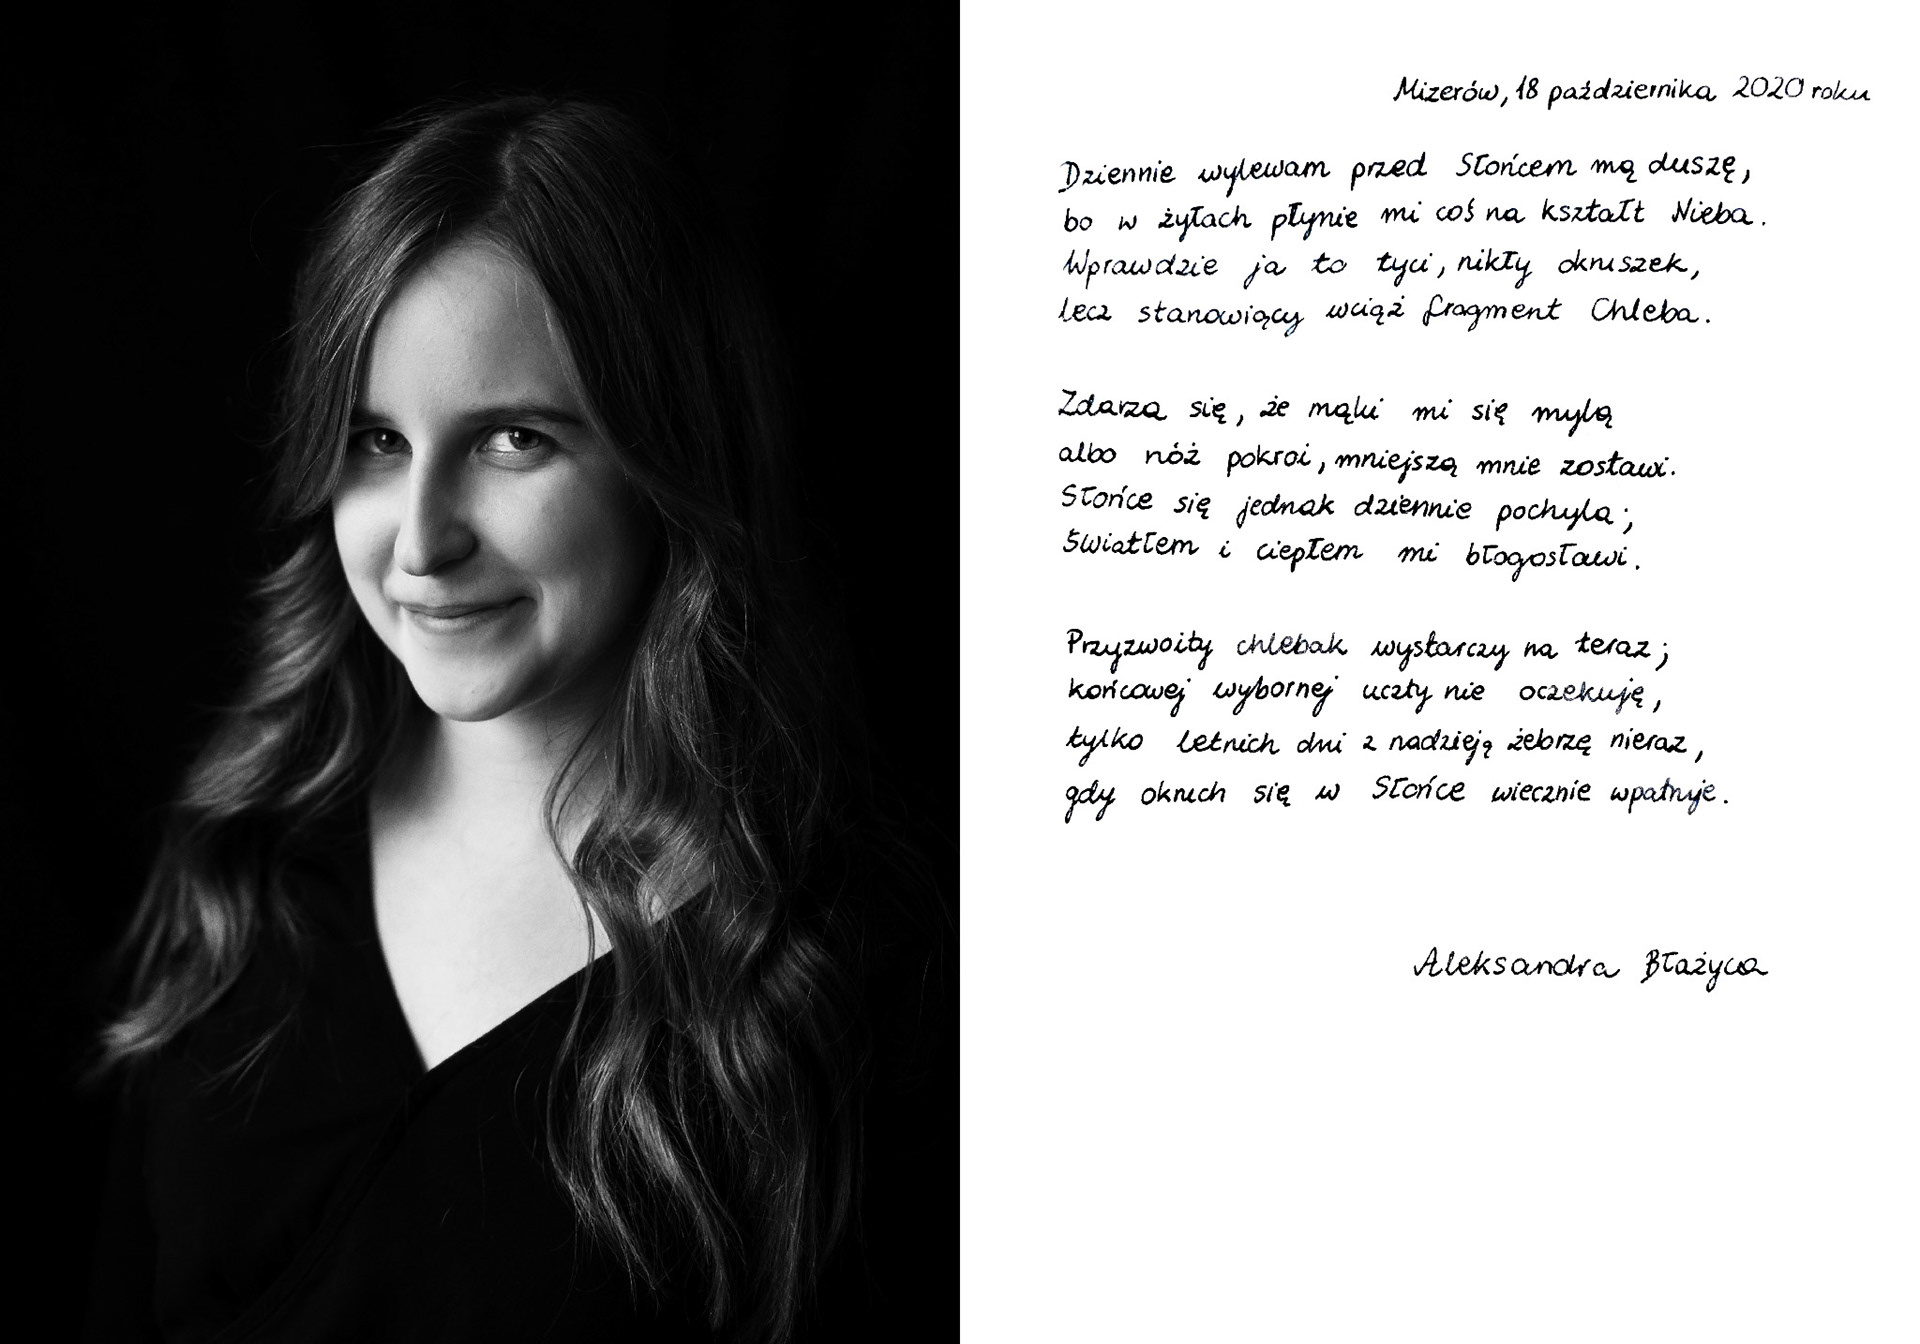 Mizerów, 18 października 2020 roku
Dziennie wylewam przed Słońcem mą duszę,
bo w żyłach płynie mi coś na kształt Nieba.
Wprawdzie ja to tyci, nikły okruszek,
lecz stanowiący wciąż fragment Chleba.
Zdarza się, że mąki mi się mylą
albo nóż pokroi, mniejszą mnie zostawi.
Słońce się jednak dziennie pochyla;
światłem i ciepłem mi błogosławi.
Przyzwoity chlebak wystarczy na teraz;
końcowej wybornej uczty nie oczekuję,
tylko letnich dni z nadzieją żebrzę nieraz,
gdy okruch się w Słońce wiecznie wpatruje.
Aleksandra Błażyca